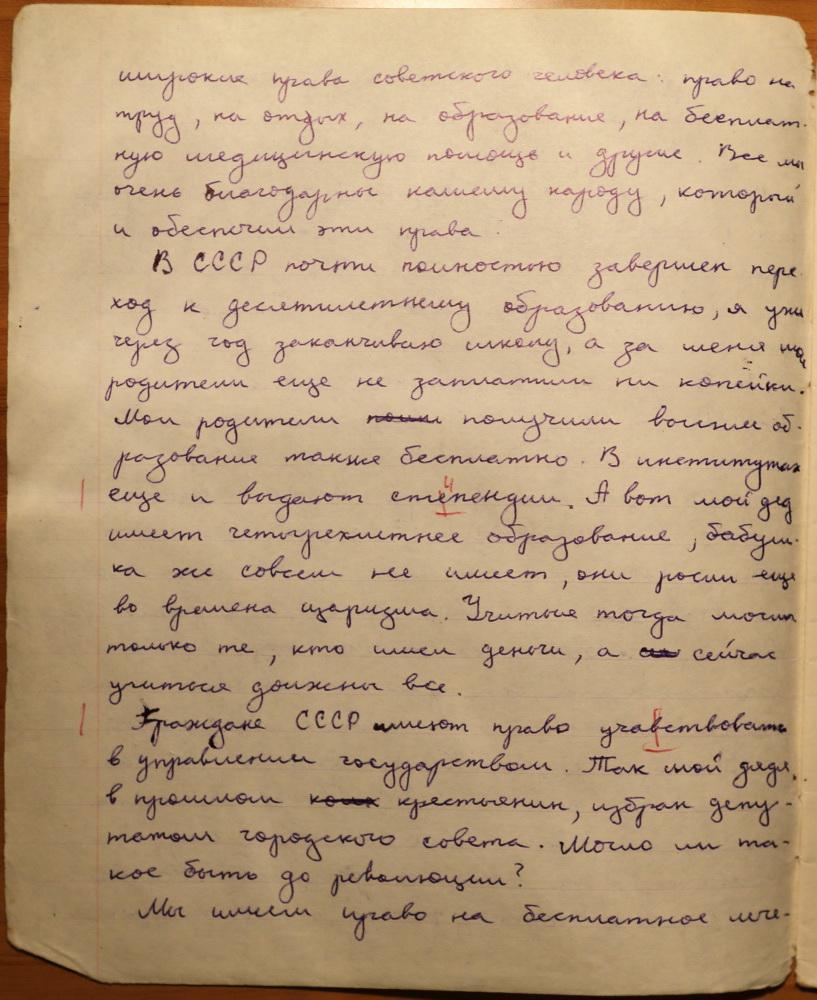 широкие права советского человека: право на
труд, на отдых, на образование, на бесплат-
ную медицинскую помощь и другие. Все мы
очень благодарны нашему народу, который
и обеспечил эти права.
В СССР почти полностью завершен пере-
ход к десятилетнему образованию, я уже
через год заканчиваю школу, а за меня мои
родители еще не заплатили ни копейки.
Мои родители получили высшее об-
разование также бесплатно. В институтах
еще и выдают степендии. А вот мой дед
имеет четырехлетнее образование, бабуш-
ка же совсем не имеет, они росли еще
во времена царизма. Учиться тогда могли
только те, кто имел деньги, а сейчас
учиться должны все.
Граждане СССР имеют право учавствовать
в управлении государством. Так мой дядя,
в прошлом крестьянин, избран депу-
татом городского совета. Могло ли та-
кое быть до революции?
Мы имеем право на бесплатное лече-